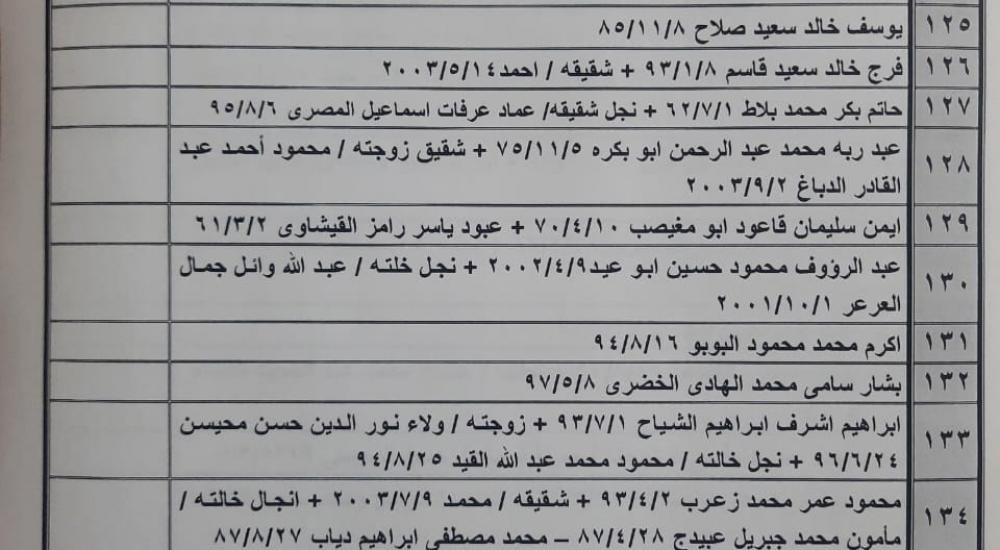 ١٢٥ يوسف خالد سعيد صلاح ٨٥/١١/٨
١٢٦ فرج خالد سعيد قاسم ٩٣/١/٨ + شقيقه / احمد٢٠٠٣/٥/١٤
١٢٧ حاتم بكر محمد بلاط ٦٢/٧/١ + نجل شقيقه/ عماد عرفات اسماعيل المصرى ٩٥/٨/٦
١٢٨ عبد ربه محمد عبد الرحمن ابو بكره ٧٥/١١/٥ + شقيق زوجته / محمود أحمد عبد
القادر الدباغ ٢٠٠٣/٩/٢
١٢٩ ايمن سليمان قاعود ابو مغيصب ٧٠/٤/١٠ + عبود ياسر رامز القيشاوى ٦١/٣/٢
١٣٠ عبد الرؤوف محمود حسين ابو عيد٢٠٠٢/٤/٩ + نجل خلته / عبد الله وائل جمال
العرعر ٢٠٠١/١٠/١
١٣١ اكرم محمد محمود البوبو ٩٤/٨/١٦
١٣٢ بشار سامى محمد الهادى الخضرى ٩٧/٥/٨
١٣٣ ابراهيم اشرف ابراهيم الشياح ٩٣/٧/١ + زوجته / ولاء نور الدين حسن محيسن
٩٦/٦/٢٤ + نجل خالته / محمود محمد عبد الله القيد ٩٤/٨/٢٥
١٣٤ محمود عمر محمد زعرب ٩٣/٤/٢ + شقيقه / محمد ٢٠٠٣/٧/٩ + انجال خالته /
مأمون محمد جبريل عبيدج ٨٧/٤/٢٨ – محمد مصطفى ابراهيم دياب ٨٧/٨/٢٧